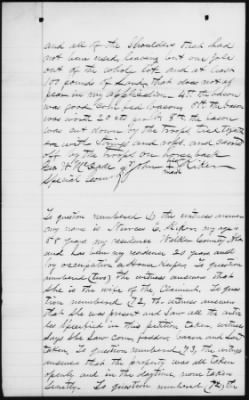 and all of the Shoulders that had
not been used, leaving but one
out of the whole lot. and at least
pounds of Lard that does not ap-
pear in my application. 4th the bacon
was good corn fed bacon. the bacon
was worth 20 cts per lb. the bacon
was cut down by the troops tied together
with strings and carried
off by the troops on horseback
John Riker
Special Com
mark
To question numbered (1) the witness answers
my name is Nancy E. Riker my age
years my residence Walker County Ala
and has been my residence 21 years and
by occupation a house keeper. To question
numbered (two) the witness answers that
she is the wife of the Claimant, To ques-
tion numbered 72, the witness answers
that she was present and saw all the arti-
cles specified in this petition taken, witness
says she saw corn, fodder, bacon and
taken, To question numbered 73, the witness
answers that the property was all taken
openly and in the daytime none taken
secretly. To question numbered (74) the